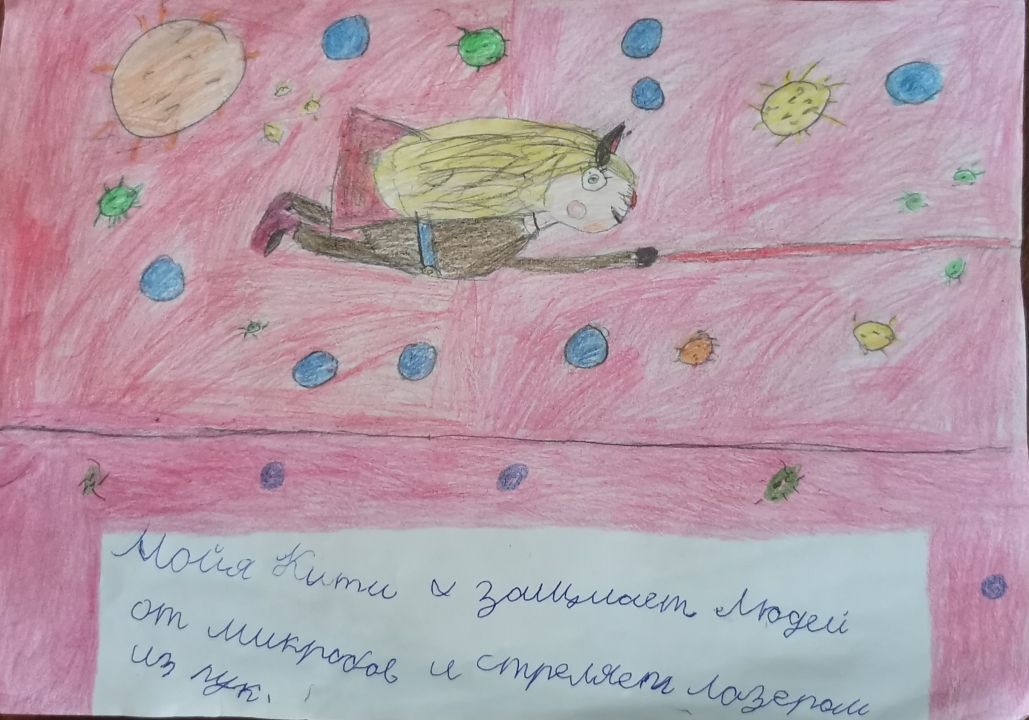 Мойя Кити и защищает людей
от микробов и стреляет лазером
из рук.